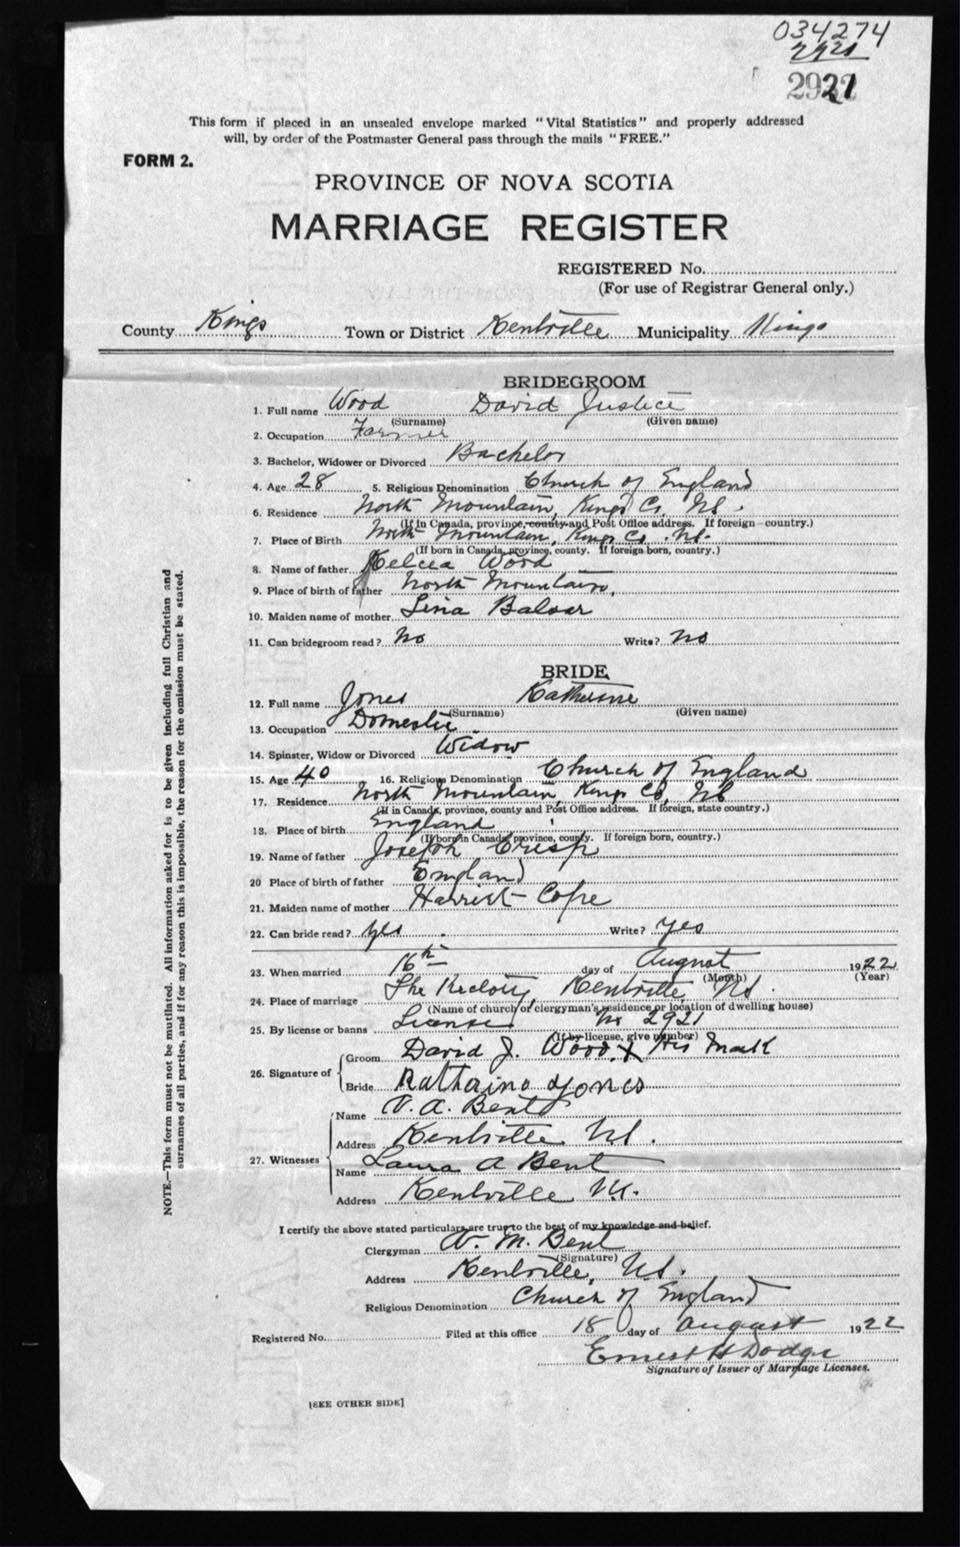 034274
2921
2921
This form if placed in an unsealed envelope marked "Vital Statistics" and properly addressed
will, by order of the Postmaster General pass through the mails "FREE."
FORM 2.
PROVINCE OF NOVA SCOTIA
MARRIAGE REGISTER
REGISTERED No.
(For use of Registrar General only.)
County Kings Town or District Kentville Municipality Kings
BRIDEGROOM
1. Full name Wood David Justice
(Surname) (Given name)
2. Occupation Farmer
3. Bachelor, Widower or Divorced Bachelor
4. Age 28 5. Religious Denomination Church of England
6. Residence North Mountain, Kings Co, NS.
(If in Canada, province, county and Post Office address. If foreign country.)
7. Place of Birth North Mountain, Kings Co. NS.
(If born in Canada, province, county. If foreign born, country.)
8. Name of father Wood
9. Place of birth of father North Mountain,
10. Maiden name of mother Lina
11. Can bridegroom read? No Write? No
BRIDE
12. Full name Jones Katherine
(Surname) (Given name)
13. Occupation Domestic
14. Spinster, Widow or Divorced Widow
15. Age 40 16. Religious Denomination Church of England
17. Residence North Mountain, Kings Co, NS
(If in Canada, province, county and Post Office address. If foreign, state country.)
18. Place of birth England
(If born in Canada province, county. If foreign born, country.)
19. Name of father Joseph Crisp
20 Place of birth of father England
21. Maiden name of mother Harriet Cope
22. Can bride read? Yes Write? Yes
23. When married 16th day of August 1922
(Month) (Year)
24. Place of marriage The Rectory, Kentville, NS.
(Name of church or clergyman's residence or location of dwelling house)
25. By license or banns License No 2921
(If by license, give number)
26. Signature of Groom David J. Wood, X His Mark
Bride Kathaine Jones
27. Witnesses Name V. A. Bent
Address Kentville NS.
Name Laura A Bent
Address Kentville NS.
I certify the above stated particulars are true to the best of my knowledge and belief.
Clergyman W. M. Bent
(Signature)
Address Kentville, NS.
Religious Denomination Church of England
Registered No. Filed at this office 18 day of August 1922
Ernest H Dodge
Signature of Issuer of Marriage Licenses.
[SEE OTHER SIDE]
NOTE.—This form must not be mutilated. All information asked for is to be given including full Christian and
surnames of all parties, and if for any reason this is impossible, the reason for the omission must be stated.